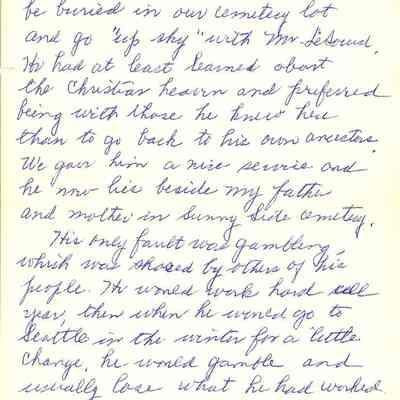 be buried in our cemetery lot
and go "up sky" with Mr. LeSourd.
He had at least learned about
the Christian heaven and preferred
being with those he knew here
than to go back to his own ancestors.
We gave him a nice service and
he now lies beside my father
and mother in Sunny Side cemetery.
His only fault was gambling,
which was shared by others of his
people. He would work hard all
year, then when he would go to
Seattle in the winter for a "little
change, he would gamble and
usually lose what he had worked